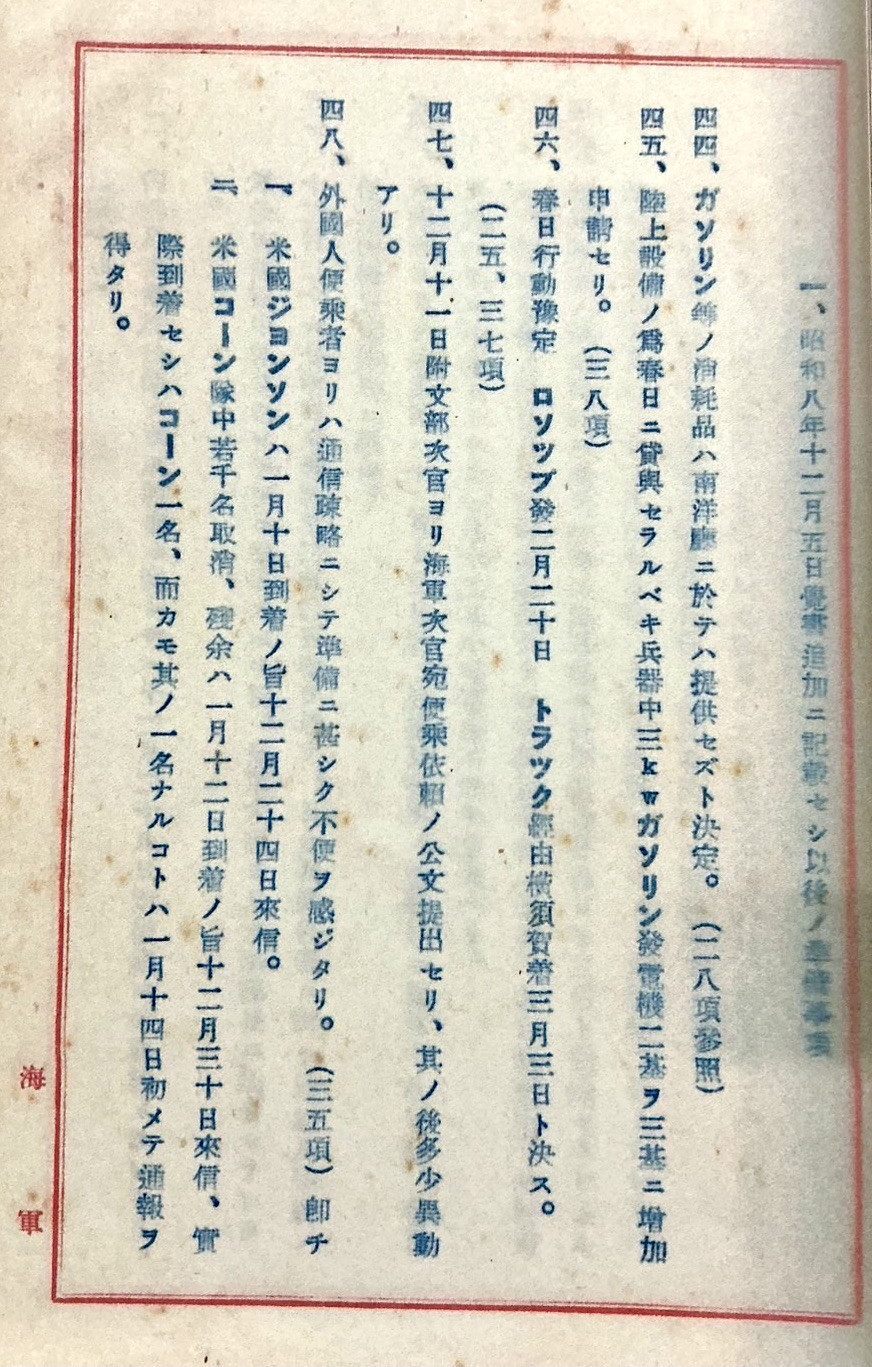 一、昭和八年十二月五日覺書追加ニ記載セシ以後ノ準備事項
四四、ガソリン等ノ消耗品ハ南洋廳ニ於テハ提供セズト決定。（二八項參照）
四五、陸上設備ノ爲春日ニ貸與セラルベキ兵器中三kwガソリン發電機二基ヲ三基ニ增加
申請セリ。（三八項）
四六、春日行動豫定　ロソップ發二月二十日　トラック經由橫須賀着三月三日ト決ス。
（二五、三七項）
四七、十二月十一日附文部次官ヨリ海軍次官宛便乘依賴ノ公文提出セリ、其ノ後多少異動
アリ。
四八、外國人便乘者ヨリハ通信疎略ニシテ準備ニ甚シク不便ヲ感ジタリ。（三五項）卽チ
一、米國ジヨンソンハ一月十日到着ノ旨十二月二十四日來信。
二、米國コーン隊中若干名取消、殘余ハ一月十二日到着ノ旨十二月三十日來信、實
際到着セシハコーン一名、而カモ其ノ一名ナルコトハ一月十四日初メテ通報ヲ
得タリ。
海軍